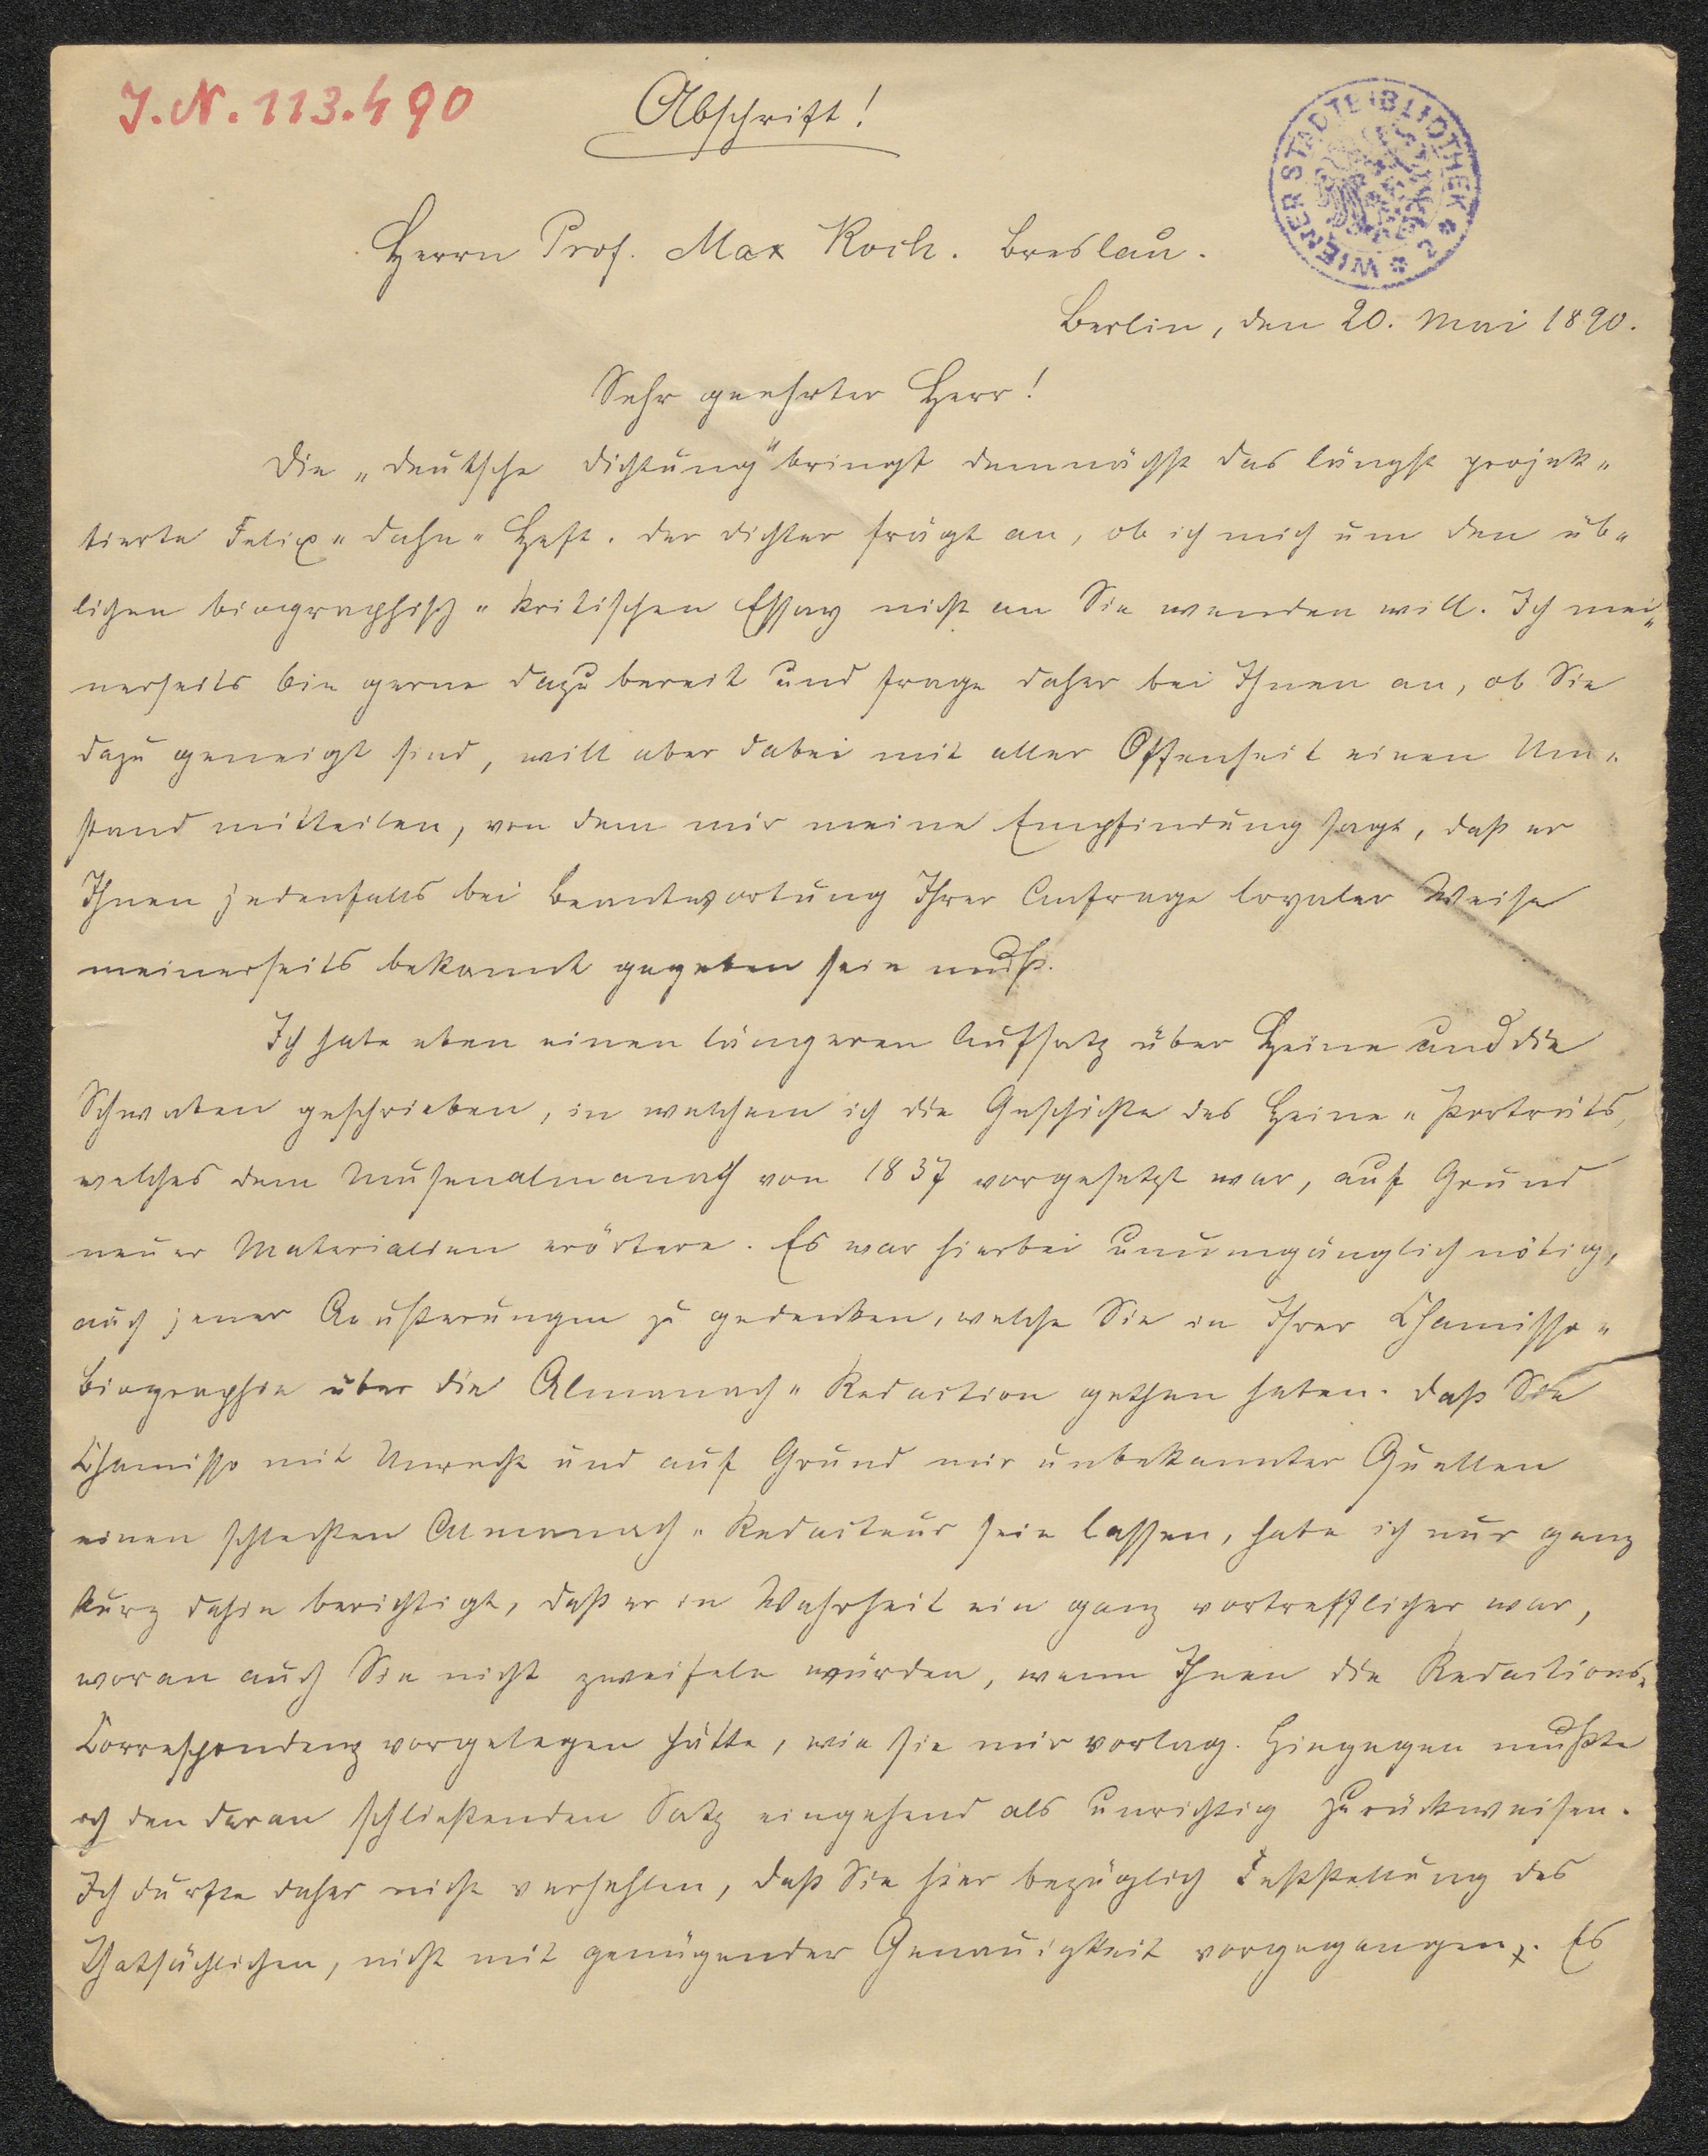 J.N. 113.490
Abschrift!
WIENER STADTBIBLIOTHEK
Herrn Prof. Max Koch. Breslau.
Berlin, den 20. Mai 1890.
Sehr geehrter Herr!
Die „Deutsche Dichtung" bringt demnächst das längst projek-
tierte Felix-Dahn-Heft. Der Dichter frägt an, ob ich mich um den üb-
lichen biographisch-kritischen Essay nicht an Sie wenden will. Ich mei-
nerseits bin gerne dazu bereit und frage daher bei Ihnen an, ob Sie
dazu geneigt sind, will aber dabei mit aller Offenheit einen Um-
stand mitteilen, von dem mir meine Empfindung sagt, daß er
Ihnen jedenfalls bei Beantwortung Ihrer Anfrage loyaler Weise
meinerseits bekannt gegeben sein muß.
Ich habe eben einen längeren Aufsatz über Heine und die
Schwaben geschrieben, in welchem ich die Geschichte des Heine-Porträts,
welches dem Musenalmanach von 1837 vorgesetzt war, auf Grund
neuer Materialien erörtere. Es war hierbei unumgänglich nötig,
auch jener Aeußerungen zu gedenken, welche Sie in Ihrer Chamisso-
Biographie über die Almanach-Redaction gethan haben. Daß Sie
Chamisso mit Unrecht und auf Grund mir unbekannter Quellen
einen schlechten Almanach-Redacteur sein lassen, habe ich nur ganz
kurz dahin berichtigt, daß er in Wahrheit ein ganz vortrefflicher war,
woran auch Sie nicht zweifeln würden, wenn Ihnen die Redactions-
Correspondenz vorgelegen hätte, wie sie mir vorlag. Hingegen mußte
ich den daran schließenden Satz eingehend als unrichtig zurückweisen.
Ich durfte daher nicht verhehlen, daß Sie hier bezüglich Feststellung des
Thatsächlichen, nicht mit genügender Genauigkeit vorgegangen. Es